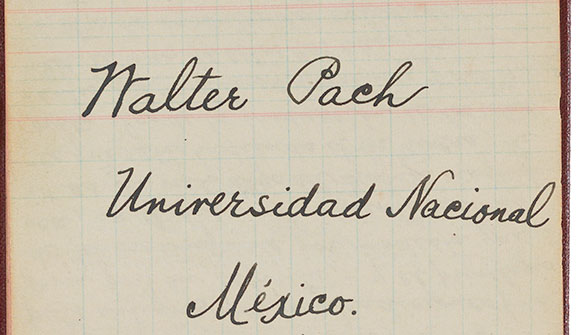 Walter Pach
Universidad Nacional
México.